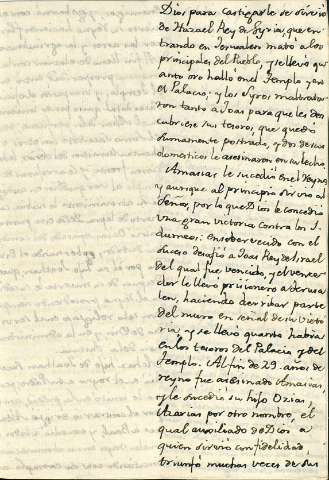 Dios para castigarle se sirvio
de Hazael Rey de Syria, que en-
trando en Jerusalem mató a los
principales del Pueblo, y se llevó qu-
anto oro halló en el Templo y en
el Palacio, y los Syros maltrata-
ron tanto a Joas para que les des-
cubriese sus tesoros, que quedó
sumamente postrado, y dos de sus
domesticos le asesinaron en su lecho.
Amasias le sucedió en el Reyno,
y aunque al principio sirvio al
Señor, por lo que Dios le concedio
una gran victoria contra los I-
dumeos; ensobervecido con el
suceso desafio a Joas Rey de Israel
del qual fue vencido, y el vence-
dor le llevó prisionero a Jerusa-
len, haciendo derribar parte
del muro en señal de su victo-
ria, y se llevó quanto habia
en los tesoros del Palacio y del
Templo. Al fin de 29 años de
reyno fue asesinado Amasias,
y le sucedio su hijo Ozias,
Azarias por otro nombre, el
qual auxiliado de Dios a
quien sirvio con fidelidad,
triunfó muchas veces de sus